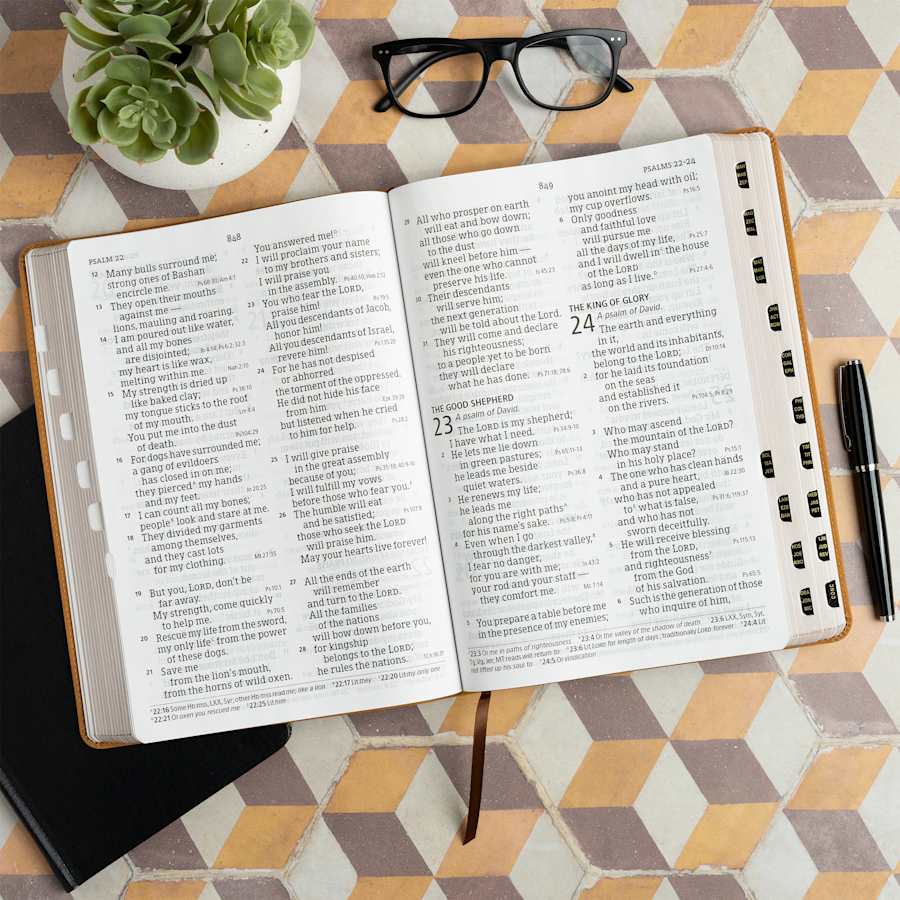 848
PSALM 22
12 Many bulls surround me;
strong ones of Bashan
encircle me. Ps 68:30; Am 4:1
13 They open their mouths
against me —
lions, mauling and roaring.
14 I am poured out like water,
and all my bones
are disjointed;
my heart is like wax,
melting within me. Nah 2:10
15 My strength is dried up
like baked clay; Ps 38:10
my tongue sticks to the roof
of my mouth. Lm 4:4
You put me into the dust
of death. Ps 104:29
16 For dogs have surrounded me;
a gang of evildoers
has closed in on me;
they pierced my hands
and my feet. Jn 20:25
17 I can count all my bones;
people look and stare at me.
18 They divided my garments
among themselves,
and they cast lots
for my clothing. Mt 27:35
19 But you, LORD, don't be
far away. Ps 10:1
My strength, come quickly
to help me. Ps 70:5
20 Rescue my life from the sword,
my only life from the power
of these dogs.
21 Save me
from the lion's mouth,
from the horns of wild oxen.
You answered me!
22 I will proclaim your name
to my brothers and sisters;
I will praise you
in the assembly. Ps 40:10; Heb 2:12
23 You who fear the LORD,
praise him! Ps 19:5
All you descendants of Jacob,
honor him!
All you descendants of Israel,
revere him! Ps 135:20
24 For he has not despised
or abhorred
the torment of the oppressed.
He did not hide his face
from him
but listened when he cried
to him for help.
25 I will give praise
in the great assembly
because of you; Ps 35:18; 40:9-10
I will fulfill my vows
before those who fear you.
26 The humble will eat
and be satisfied; Ps 107:9
those who seek the LORD
will praise him.
May your hearts live forever!
27 All the ends of the earth
will remember
and turn to the LORD.
All the families
of the nations
will bow down before you,
28 for kingship
belongs to the LORD;
he rules the nations.
22:16 Some Hb mss, LXX, Syr; other Hb mss read me; like a lion 22:17 Lit they 22:20 Lit my only one
22:21 Or oxen you rescued me 22:25 Lit him
849
PSALMS 22–24
29 All who prosper on earth
will eat and bow down;
all those who go down
to the dust
will kneel before him —
even the one who cannot
preserve his life. Is 45:23
30 Their descendants
will serve him;
the next generation
will be told about the Lord.
31 They will come and declare
his righteousness;
to a people yet to be born
they will declare
what he has done. Ps 71:18; 78:6
THE GOOD SHEPHERD
23 A psalm of David.
The LORD is my shepherd;
I have what I need. Ps 34:9-10
2 He lets me lie down
in green pastures; Ps 65:11-13
he leads me beside
quiet waters.
3 He renews my life; Ps 36:8
he leads me
along the right paths
for his name's sake. Ps 5:8; Pr 4:11
4 Even when I go
through the darkest valley,
I fear no danger,
for you are with me;
your rod and your staff —
they comfort me. Mc 7:14
5 You prepare a table before me
in the presence of my enemies;
you anoint my head with oil;
my cup overflows. Ps 16:5
6 Only goodness
and faithful love
will pursue me
all the days of my life, Ps 25:7
and I will dwell in the house
of the LORD
as long as I live. Ps 27:4-6
THE KING OF GLORY
24 A psalm of David.
The earth and everything
in it,
the world and its inhabitants,
belong to the LORD;
2 for he laid its foundation Dt 10:14
on the seas
and established it
on the rivers. Ps 104:5
3 Who may ascend
the mountain of the LORD?
Who may stand
in his holy place? Ps 15:1
4 The one who has clean hands
and a pure heart,
who has not appealed
to what is false, Ps 31:6; 119:37
and who has not
sworn deceitfully.
5 He will receive blessing
from the LORD, Ps 115:13
and righteousness
from the God
of his salvation.
6 Such is the generation of those
who inquire of him, Ps 65:5
23:3 Or me in paths of righteousness 23:4 Or the valley of the shadow of death 23:6 LXX, Sym, Syr,
Tg, Vg, Jer; MT reads will return to 23:6 Lit LORD for length of days; traditionally LORD forever 24:4 Lit
lifted up his soul to 24:5 Or vindication